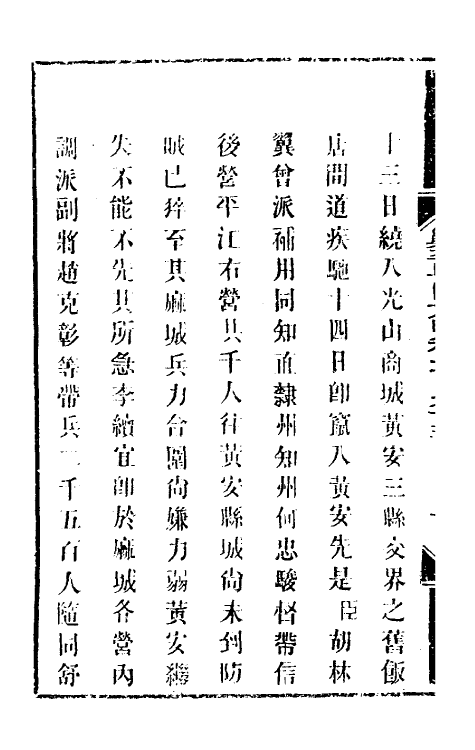 十三日繞入光山商城黃安三縣交界之舊飯
店間道疾馳十四日卽竄入黃安先是臣胡林
翼曾派補用同知直隸州知州何忠駿督帶信
後營平江右營共千人往黃安縣城尚未到防
賊已猝至其麻城兵力合圍尚嫌力弱黃安繼
失不能不先其所急李續宜卽於麻城各營內
調派副將趙克彰等帶兵二千五百人隨同舒